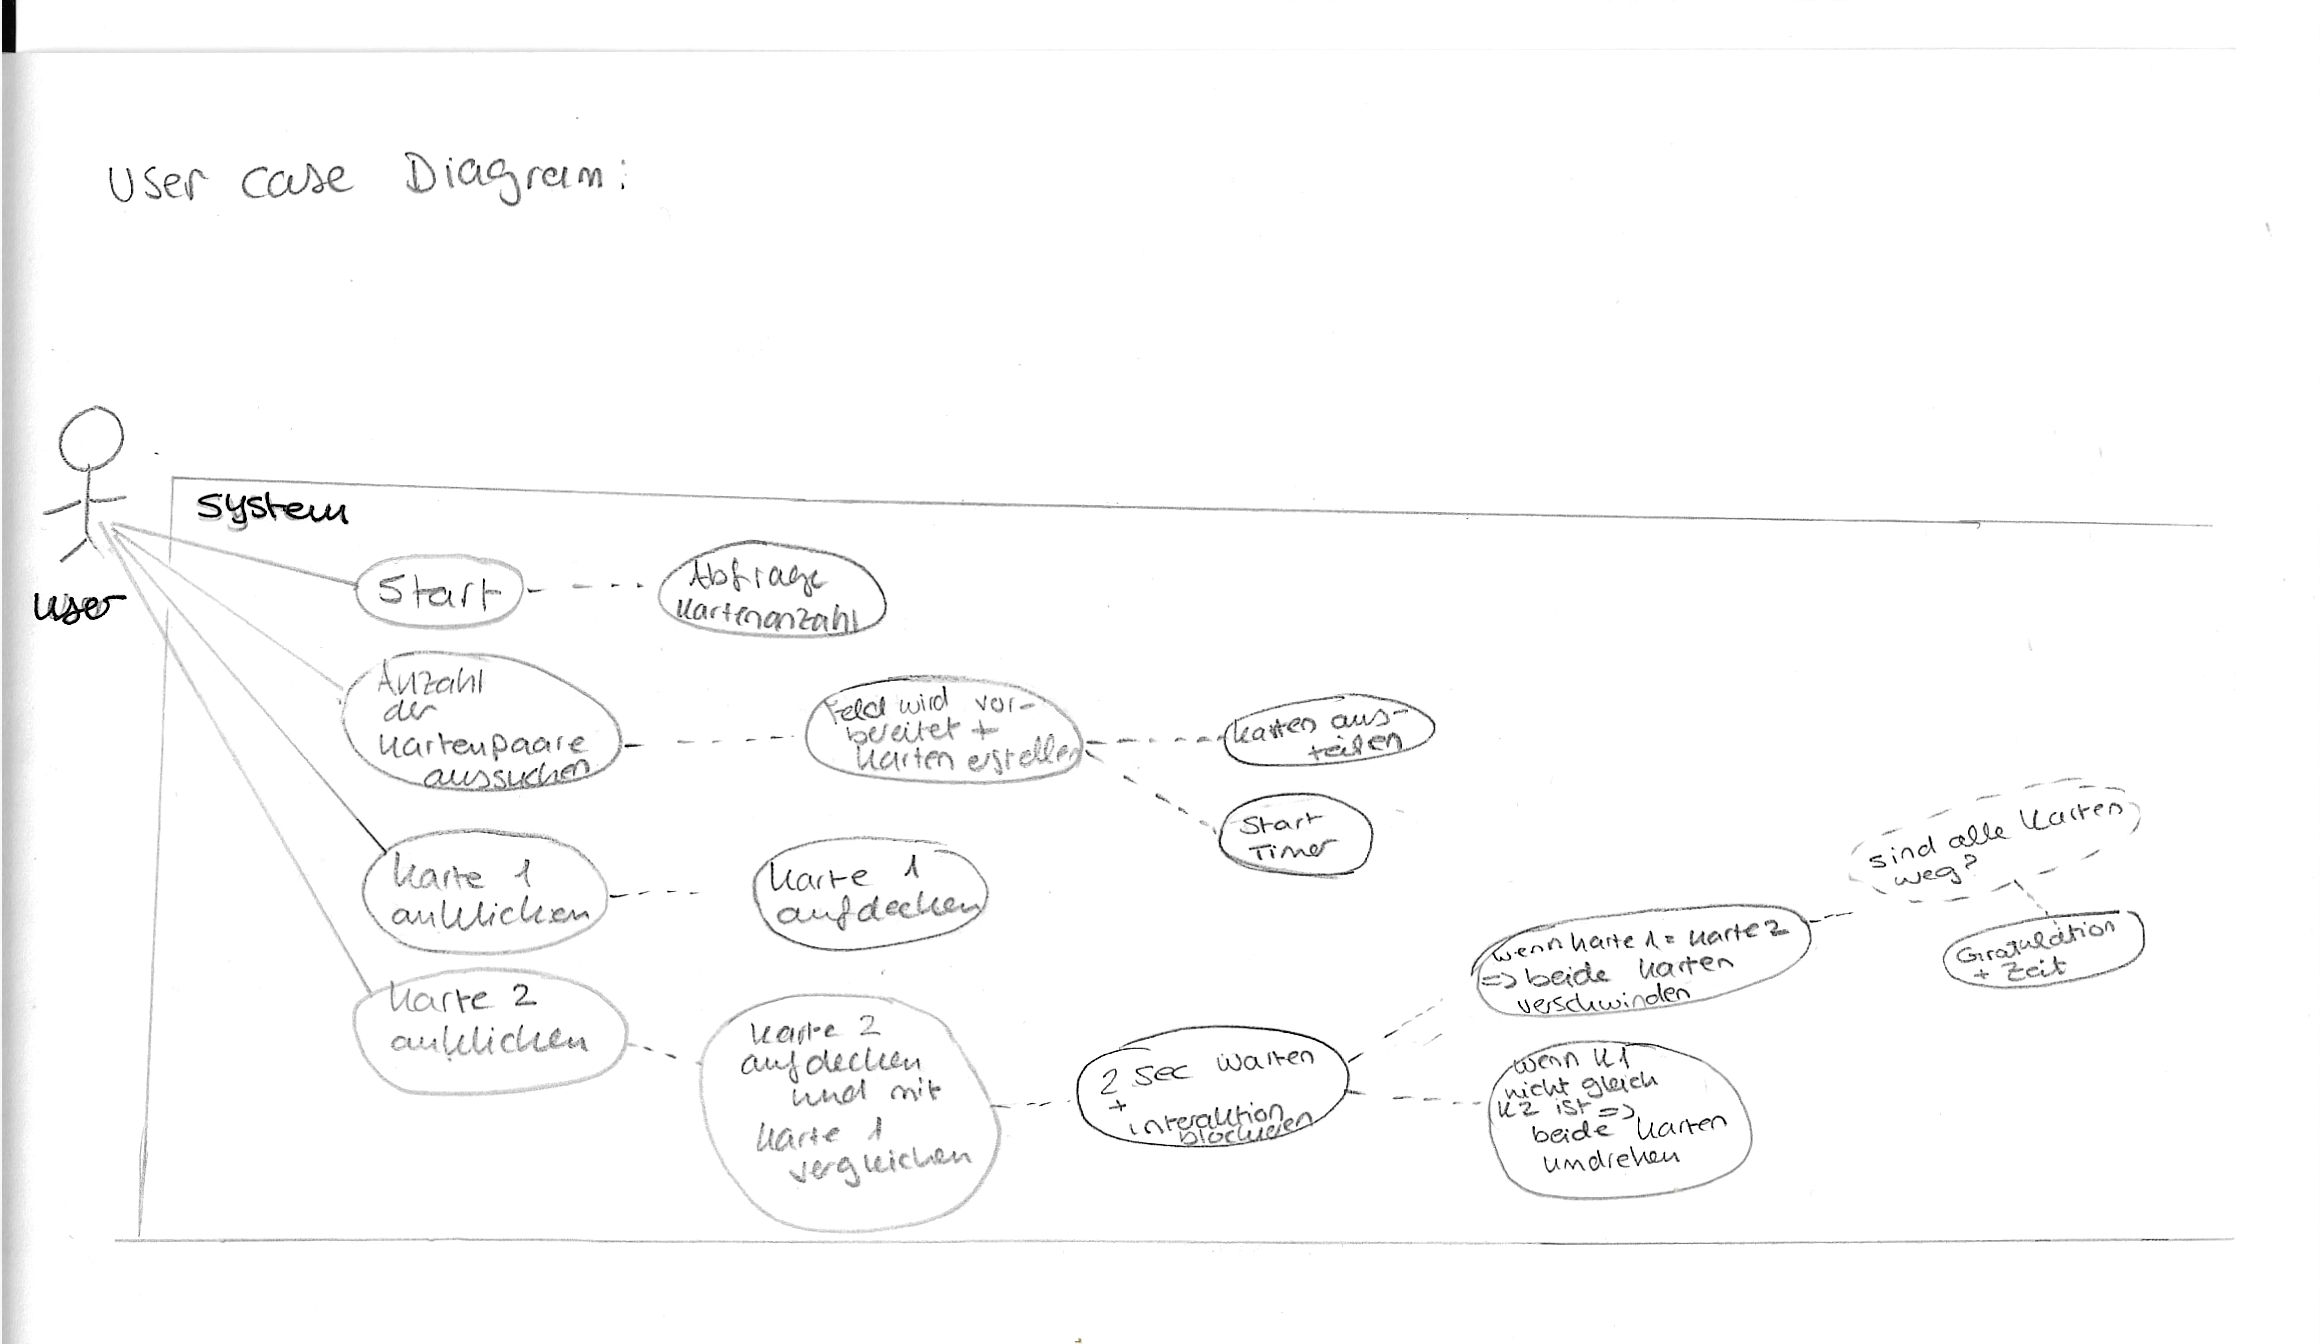 User case Diagram:
System
User
Start
Abfrage
Kartenanzahl
Anzahl
der
Kartenpaare
aussuchen
Feld wird vor-
bereitet +
Karten erstellen
Karten aus-
teilen
Start
Timer
Karte 1
anklicken
Karte 1
aufdecken
Karte 2
anklicken
Karte 2
aufdecken
und mit
Karte 1
vergleichen
2 sec warten
+
interaktion
blockieren
wenn Karte 1 = Karte 2
=> beide Karten
verschwinden
sind alle Karten
weg?
Gratulation
+ Zeit
wenn K1
nicht gleich
K2 ist =>
beide Karten
umdrehen